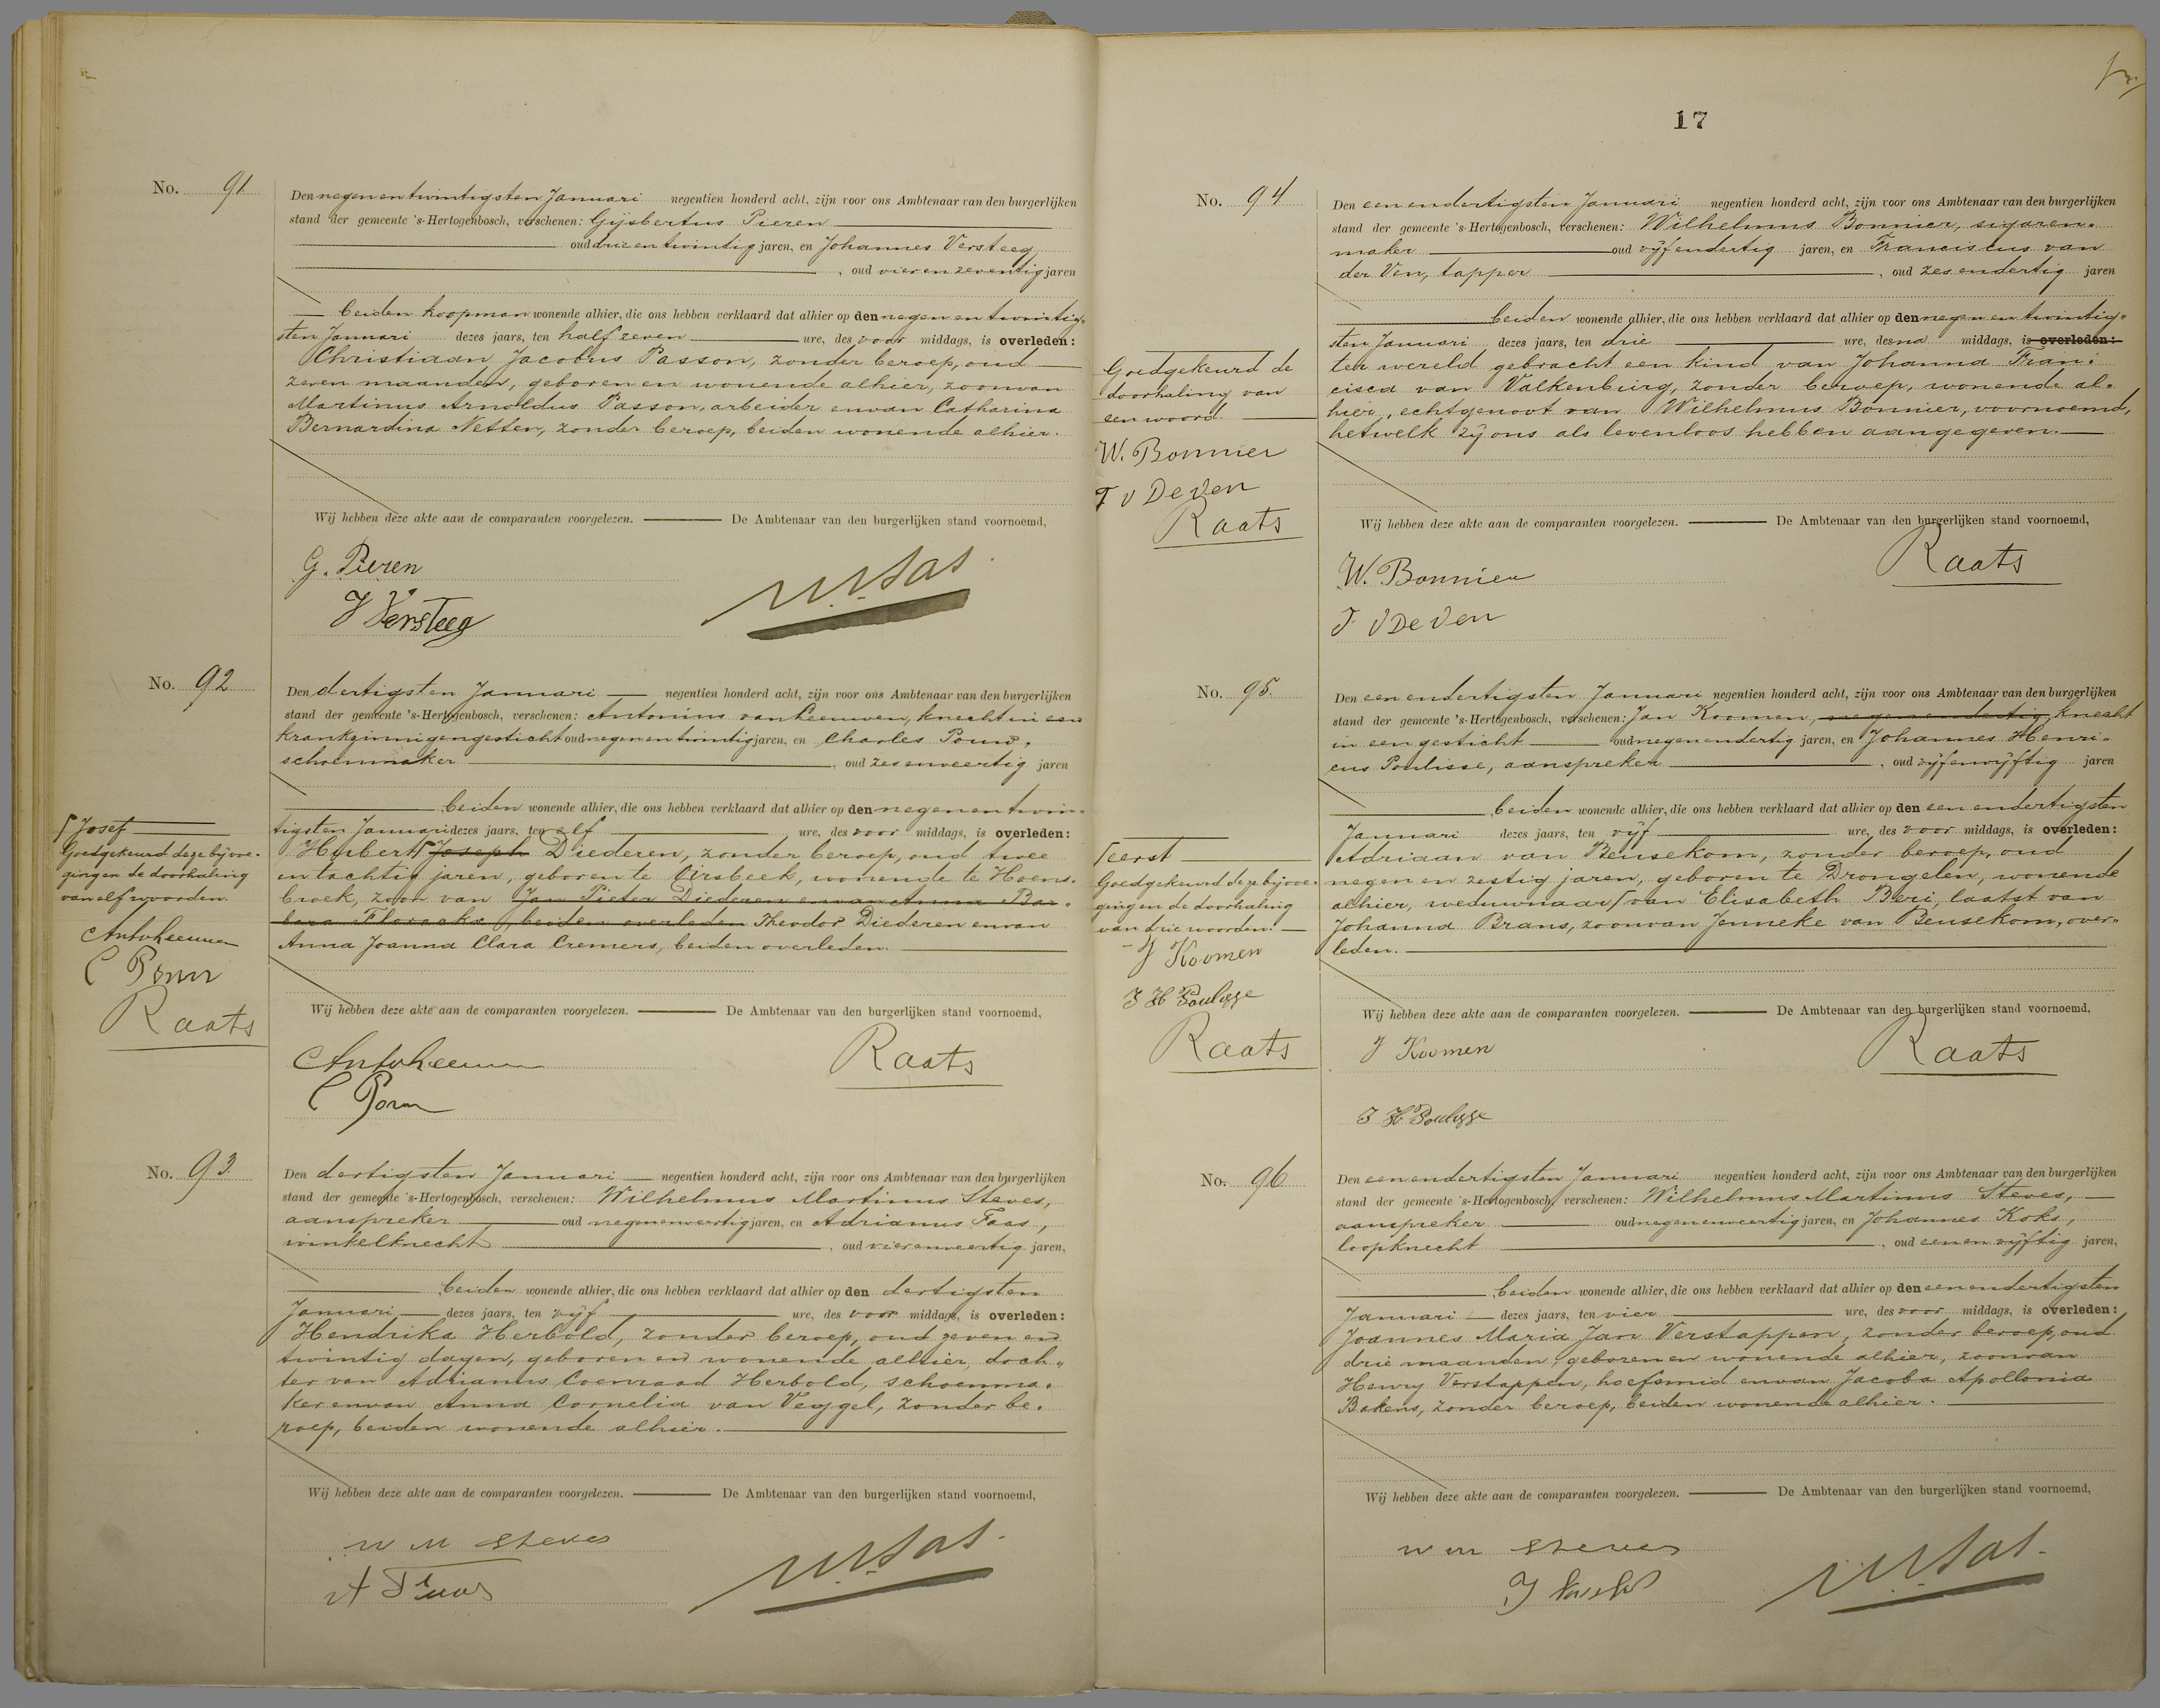 No. 91
Den negenentwintigsten Januari negentien honderd acht, zijn voor ons Ambtenaar van den burgerlijken
stand der gemeente 's-Hertogenbosch, verschenen: Gijsbertus Pieren
oud drieentwintig jaren, en Johannes Versteeg
, oud vierenzeventig jaren
beiden koopman wonende alhier, die ons hebben verklaard dat alhier op den negenentwintig-
sten Januari dezes jaars, ten half zeven ure, des voor middags, is overleden:
Christiaan Jacobus Passon, zonder beroep, oud
zeven maanden, geboren en wonende alhier, zoon van
Martinus Arnoldus Passon, arbeider en van Catharina
Bernardina Netten, zonder beroep, beiden wonende alhier.
Wij hebben deze akte aan de comparanten voorgelezen. De Ambtenaar van den burgerlijken stand voornoemd,
G. Pieren
J Versteeg
No. 92
Den dertigsten Januari negentien honderd acht, zijn voor ons Ambtenaar van den burgerlijken
stand der gemeente 's-Hertogenbosch, verschenen: Antonius van Leeuwen, knecht in een
krankzinnigengesticht oud negenentwintig jaren, en Charles
schoenmaker , oud zesenveertig jaren
beiden wonende alhier, die ons hebben verklaard dat alhier op den negenentwin-
tigsten Januari dezes jaars, ten elf ure, des voor middags, is overleden:
Hubert Joseph Diederen, zonder beroep, oud twee
en tachtig jaren, geboren te Oirsbeek, wonende te Hoens-
broek, zoon van Jan Pieter Diederen en van Anna Bar-
bara beiden overleden Theodor Diederen en van
Anna Joanna Clara Cremers, beiden overleden.
Josef
Goedgekeurd deze bijvoe-
ging en de doorhaling
van elf woorden.
Raats
Wij hebben deze akte aan de comparanten voorgelezen. De Ambtenaar van den burgerlijken stand voornoemd,
Raats
No. 93
Den dertigsten Januari negentien honderd acht, zijn voor ons Ambtenaar van den burgerlijken
stand der gemeente 's-Hertogenbosch, verschenen: Wilhelmus Martinus Steves,
aanspreker oud negenenveertig jaren, en Adrianus Faas,
winkelknecht , oud vierenveertig jaren,
beiden wonende alhier, die ons hebben verklaard dat alhier op den dertigsten
Januari dezes jaars, ten vijf ure, des voor middags, is overleden:
Hendrika Herbold, zonder beroep, oud zeven en
twintig dagen, geboren en wonende alhier, doch-
ter van Adrianus Coenraad Herbold, schoenma-
ker en van Anna Cornelia van Veggel, zonder be-
roep, beiden wonende alhier.
Wij hebben deze akte aan de comparanten voorgelezen. De Ambtenaar van den burgerlijken stand voornoemd,
W M Steves
A Faas
17
No. 94
Den eenendertigsten Januari negentien honderd acht, zijn voor ons Ambtenaar van den burgerlijken
stand der gemeente 's-Hertogenbosch, verschenen: Wilhelmus Bonnier, sigaren-
maker oud vijfendertig jaren, en Franciscus van
der Ven, tapper , oud zesendertig jaren
beiden wonende alhier, die ons hebben verklaard dat alhier op den negenentwintig-
sten Januari dezes jaars, ten drie ure, des na middags, is overleden:
ter wereld gebracht een kind van Johanna Fran-
cisca van Valkenburg, zonder beroep, wonende al-
hier, echtgenoot van Wilhelmus Bonnier, voornoemd,
hetwelk zij ons als levenloos hebben aangegeven.
Goedgekeurd de
doorhaling van
een woord.
W. Bonnier
F v De Ven
Raats
Wij hebben deze akte aan de comparanten voorgelezen. De Ambtenaar van den burgerlijken stand voornoemd,
W. Bonnier
F v De Ven
Raats
No. 95.
Den eenendertigsten Januari negentien honderd acht, zijn voor ons Ambtenaar van den burgerlijken
stand der gemeente 's-Hertogenbosch, verschenen: Jan Koomen, negenendertig, knecht
in een gesticht oud negenendertig jaren, en Johannes Henri-
cus Poulisse, aanspreker , oud vijfenvijftig jaren
beiden wonende alhier, die ons hebben verklaard dat alhier op den eenendertigsten
Januari dezes jaars, ten vijf ure, des voor middags, is overleden:
Adriaan van Beusekom, zonder beroep, oud
negen en zestig jaren, geboren te Drongelen, wonende
alhier, weduwnaar van Elisabeth Beri, laatst van
Johanna Brans, zoon van Jenneke van Beusekom, over-
leden.
eerst
Goedgekeurd deze bijvoe-
ging en de doorhaling
van drie woorden.
J Koomen
J H Poulisse
Raats
Wij hebben deze akte aan de comparanten voorgelezen. De Ambtenaar van den burgerlijken stand voornoemd,
J Koomen
Raats
J H Poulisse
No. 96
Den eenendertigsten Januari negentien honderd acht, zijn voor ons Ambtenaar van den burgerlijken
stand der gemeente 's-Hertogenbosch, verschenen: Wilhelmus Martinus Steves,
aanspreker oud negenenveertig jaren, en Johannes Koks,
loopknecht , oud eenenvijftig jaren,
beiden wonende alhier, die ons hebben verklaard dat alhier op den eenendertigsten
Januari dezes jaars, ten vier ure, des voor middags, is overleden:
Joannes Maria Jan Verstappen, zonder beroep, oud
drie maanden, geboren en wonende alhier, zoon van
Henry Verstappen, hoefsmid en van Jacoba Apollonia
Bakens, zonder beroep, beiden wonende alhier.
Wij hebben deze akte aan de comparanten voorgelezen. De Ambtenaar van den burgerlijken stand voornoemd,
W M Steves